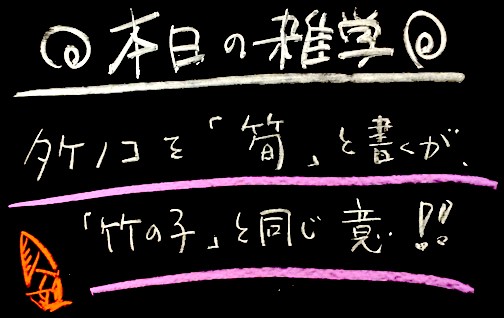 本日の雑学
タケノコを「筍」と書くが、
「竹の子」と同じ意!!